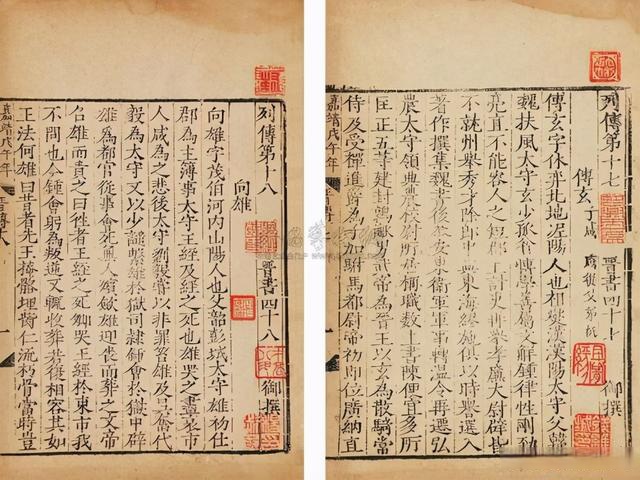 列傳第十七 晉書四十七
傅玄 子咸 咸從父弟祗
御撰
傅玄字休弈北地泥陽人也祖燮漢漢陽太守父幹
魏扶風太守玄少孤貧博學善屬文解鍾律性剛勁
亮直不能容人之短郡上計吏再舉孝廉太尉辟皆
不就州舉秀才除郎中與東海繆施俱以時譽選入
著作撰集魏書後參安東衛軍軍事轉溫令再遷弘
農太守領典農校尉所居稱職數上書陳便宜多所
匡正五等建封鶉觚男武帝為晉王以玄為散騎常
侍及受禪進爵為子加駙馬都尉帝初即位廣納直
嘉靖戊午年
列傳第十八 晉書四十八
向雄
御撰
向雄字茂伯河內山陽人也父韶彭城太守雄初仕
郡為主簿事太守王經及經之死也雄哭之盡哀市
人咸為之悲後太守劉毅嘗以非罪笞雄及吳奮代
毅為太守又以少譴繫雄於獄司隸鍾會於獄中辟
雄為都官從事會死無人殯斂雄迎喪而葬之文帝
召雄而責之曰往者王經之死卿哭王經於東市我
不問也今鍾會躬為叛逆又輒收葬若復相容其如
王法何雄曰昔者先王掩骼埋胔仁流朽骨當時豈
嘉靖戊午年